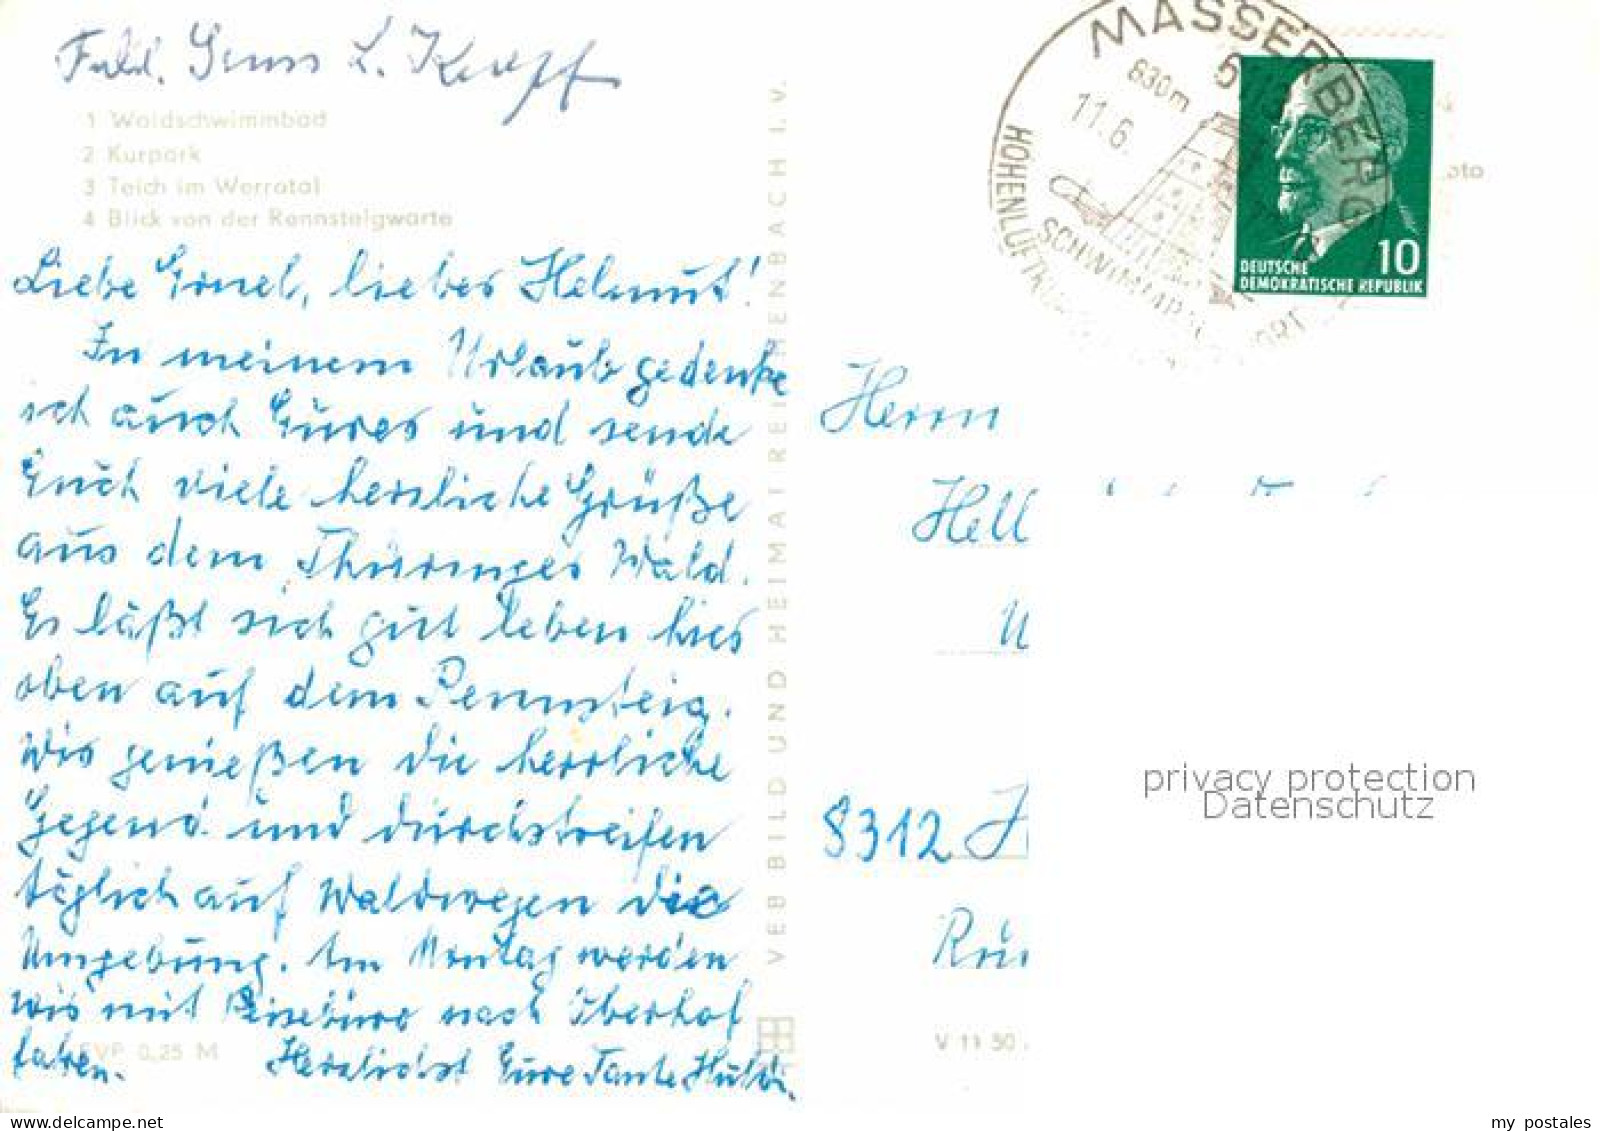 1 Waldschwimmbad
2 Kurpark
3 Teich im Werratal
4 Blick von der Rennsteigwarte
Liebe Ernel, liebes Helmut!
In meinem Urlaub gedenke
ich auch Eurer und sende
Euch viele herzliche Grüße
aus dem Thüringer Wald.
Es läßt sich gut leben hier
oben auf dem Rennsteig.
Wir genießen die herrliche
Gegend und durchstreifen
täglich auf Waldwegen die
Umgebung. Am Montag werden
wir mit Reisebüro nach Oberhof
fahren. Herzlichst Eure Tante Hulda.
EVP 0,25 M
VEB BILD UND HEIMAT REICHENBACH I. V.
MASSERBERG
830 m
11.6.
HÖHENLUFTKURORT
SCHWIMMBAD
10
DEUTSCHE
DEMOKRATISCHE REPUBLIK
Herrn
Hell
8312 H
V 11 50
privacy protection
Datenschutz
delcampe.net
my_postales